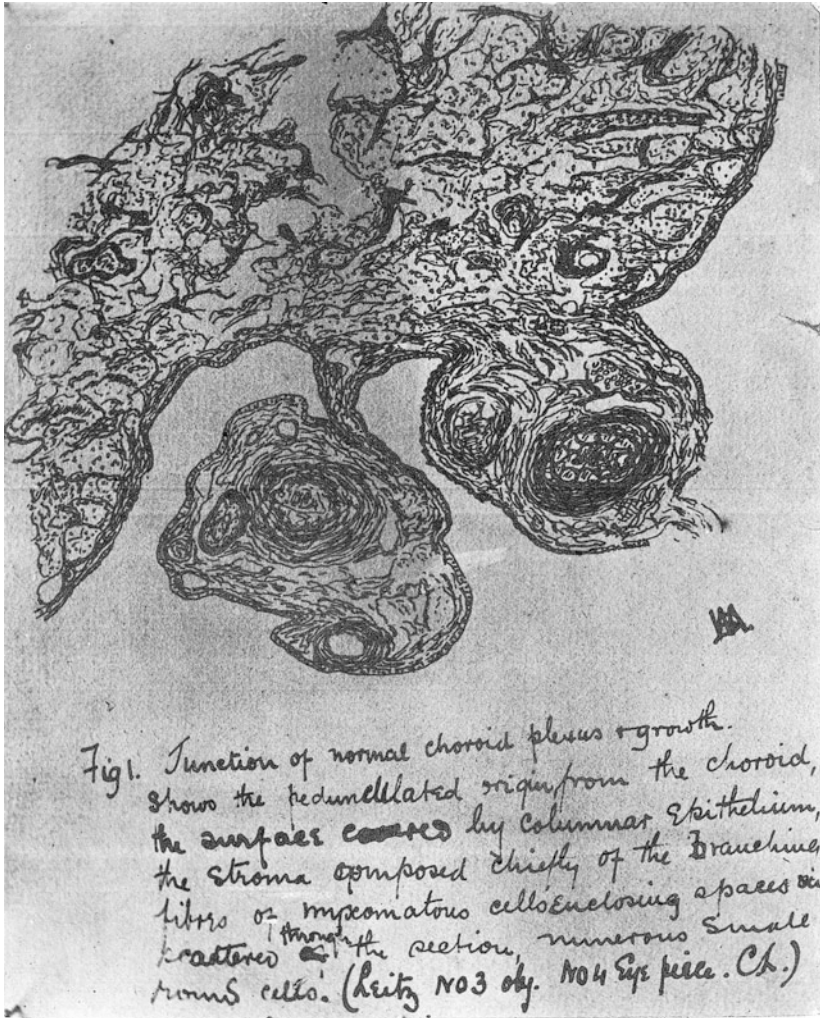 Fig 1. Junction of normal choroid plexus & growth.
Shows the pedunculated origin from the choroid,
the surface covered by columnar Epithelium,
the stroma composed chiefly of the Branching
fibres of myxomatous cells enclosing spaces
scattered through the section, numerous small
round cells. (Leitz No 3 obj. No 4 Eye piece. Ch.)